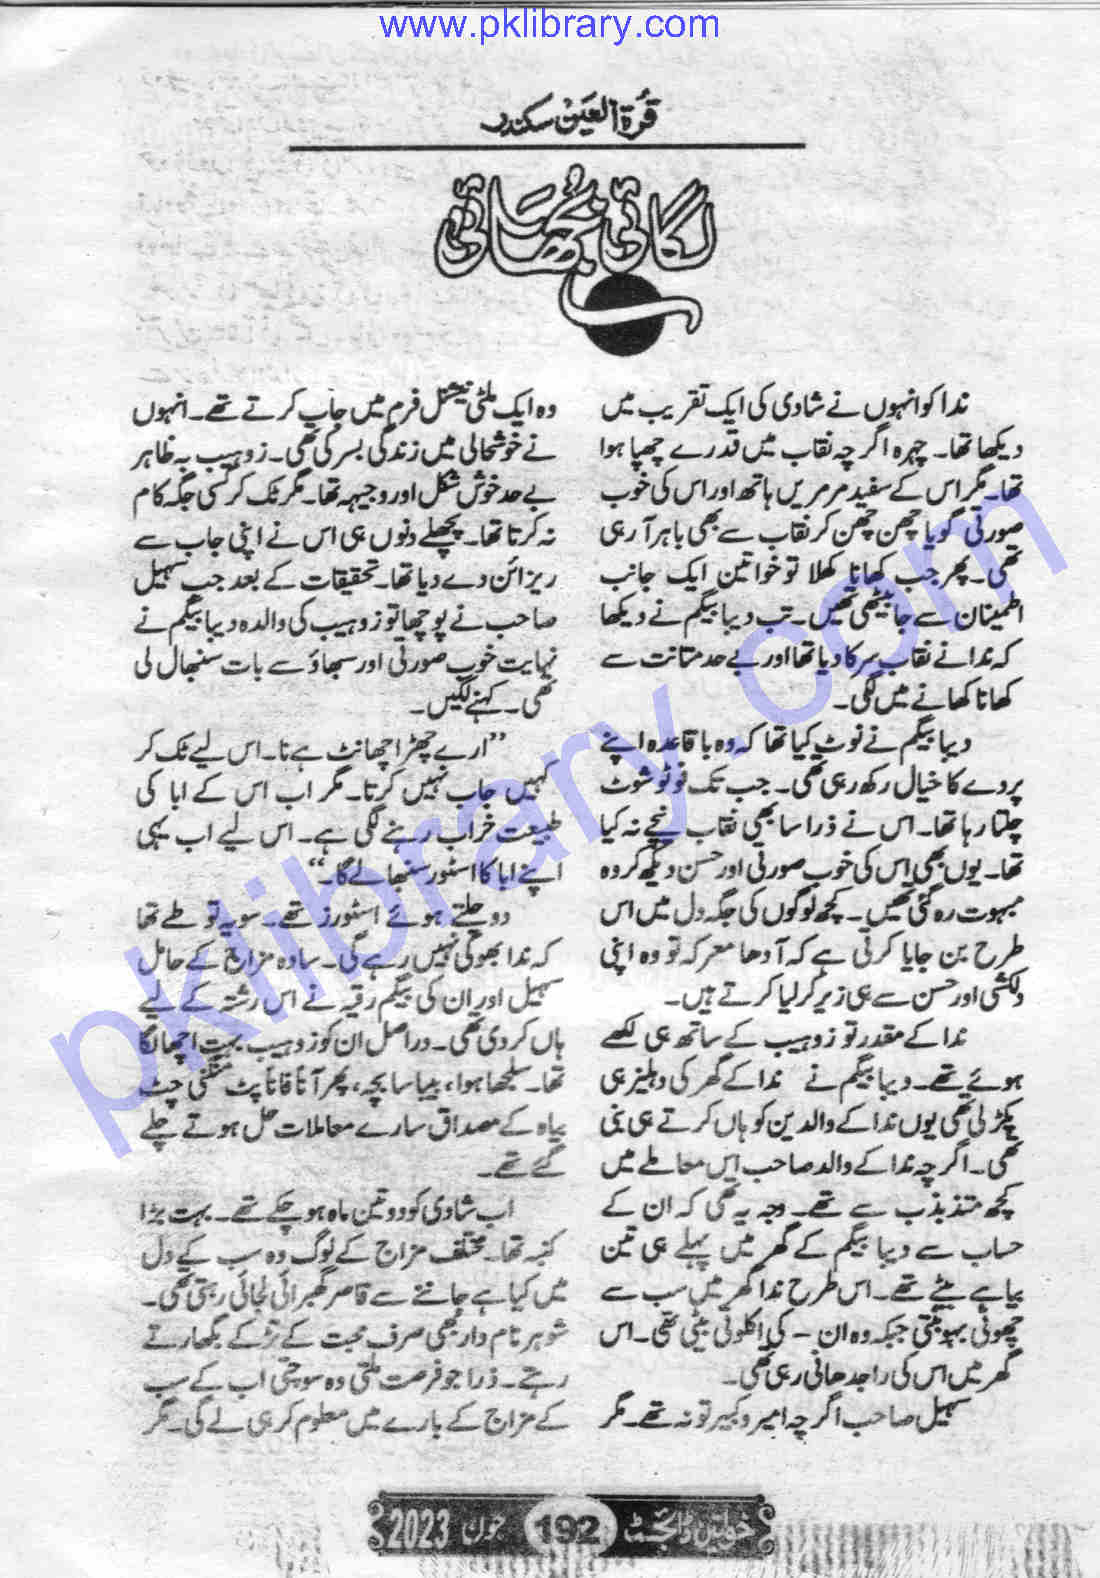 www.pklibrary.com
قرۃ العین سکندر
لگائی بجھائی
ندا کو انہوں نے شادی کی ایک تقریب میں
دیکھا تھا۔ چہرہ اگرچہ نقاب میں قدرے چھپا ہوا
تھا۔ مگر اس کے سفید مرمریں ہاتھ اور اس کی خوب
صورتی گویا چھن چھن کر نقاب سے بھی باہر آ رہی
تھی۔ پھر جب کھانا کھلا تو خواتین ایک جانب
اطمینان سے جا بیٹھی تھیں۔ تب دیبا بیگم نے دیکھا
کہ ندا نے نقاب سرکا دیا تھا اور بے حد متانت سے
کھانا کھانے میں لگی۔
دیبا بیگم نے نوٹ کیا تھا کہ وہ باقاعدہ اپنے
پردے کا خیال رکھ رہی تھی۔ جب تک فوٹو شوٹ
چلتا رہا تھا۔ اس نے ذرا سا بھی نقاب نیچے نہ کیا
تھا۔ یوں بھی اس کی خوب صورتی اور حسن دیکھ کر وہ
مبہوت رہ گئی تھیں۔ کچھ لوگوں کی جگہ دل میں اس
طرح بن جایا کرتی ہے کہ آدھا معرکہ تو وہ اپنی
دلکشی اور حسن سے ہی زیر کر لیا کرتے ہیں۔
ندا کے مقدر تو زوہیب کے ساتھ ہی لکھے
ہوئے تھے۔ دیبا بیگم نے ندا کے گھر کی دہلیز ہی
پکڑ لی تھی یوں ندا کے والدین کو ہاں کرتے ہی بنی
تھی۔ اگرچہ ندا کے والد صاحب اس معاملے میں
کچھ متذبذب سے تھے۔ وجہ یہ تھی کہ ان کے
حساب سے دیبا بیگم کے گھر میں پہلے ہی تین
بیاہے بیٹے تھے۔ اس طرح ندا گھر میں سب سے
چھوٹی بہو بنتی جبکہ وہ ان – کی اکلوتی بیٹی تھی۔ اس
گھر میں اس کی راجدھانی رہی تھی۔
سہیل صاحب اگرچہ امیر و کبیر تو نہ تھے۔ مگر
وہ ایک ملٹی نیشنل فرم میں جاب کرتے تھے۔ انہوں
نے خوشحالی میں زندگی بسر کی تھی۔ زوہیب بہ ظاہر
بے حد خوش شکل اور وجیہہ تھا۔ مگر ٹک کر کسی جگہ کام
نہ کرتا تھا۔ پچھلے دنوں ہی اس نے اپنی جاب سے
ریزائن دے دیا تھا۔ تحقیقات کے بعد جب سہیل
صاحب نے پوچھا تو زوہیب کی والدہ دیبا بیگم نے
نہایت خوب صورتی اور سبھاؤ سے بات سنبھال لی
تھی۔ کہنے لگیں۔
”ارے چھڑا چھانٹ ہے نا۔ اس لیے ٹک کر
کہیں جاب نہیں کرتا۔ مگر اب اس کے ابا کی
طبیعت خراب رہنے لگی ہے۔ اس لیے اب یہی
اپنے ابا کا اسٹور سنبھالے گا۔“
دو چلتے ہوئے اسٹورز تھے۔ سو یہ تو طے تھا
کہ ندا بھوکی نہیں رہے گی۔ سادہ مزاج کے حامل
سہیل اور ان کی بیگم رقیہ نے اس رشتہ کے لیے
ہاں کر دی تھی۔ دراصل ان کو زوہیب بہت اچھا لگا
تھا۔ سلجھا ہوا، بیبا سا بچہ، پھر آناً فاناً پٹ منگنی چٹ
بیاہ کے مصداق سارے معاملات حل ہوتے چلے
گئے تھے۔
اب شادی کو دو تین ماہ ہو چکے تھے۔ بہت بڑا
کنبہ تھا۔ مختلف مزاج کے لوگ وہ سب کے دل
میں کیا ہے جاننے سے قاصر گھبرائی لجائی رہتی تھی۔
شوہر نام دار بھی صرف محبت کے تڑکے بگھارتے
رہتے۔ ذرا جو فرصت ملتی وہ سوچتی اب کے سب
کے مزاج کے بارے میں معلوم کر ہی لے گی۔ مگر
خواتین ڈائجسٹ 192 جون 2023
pklibrary.com